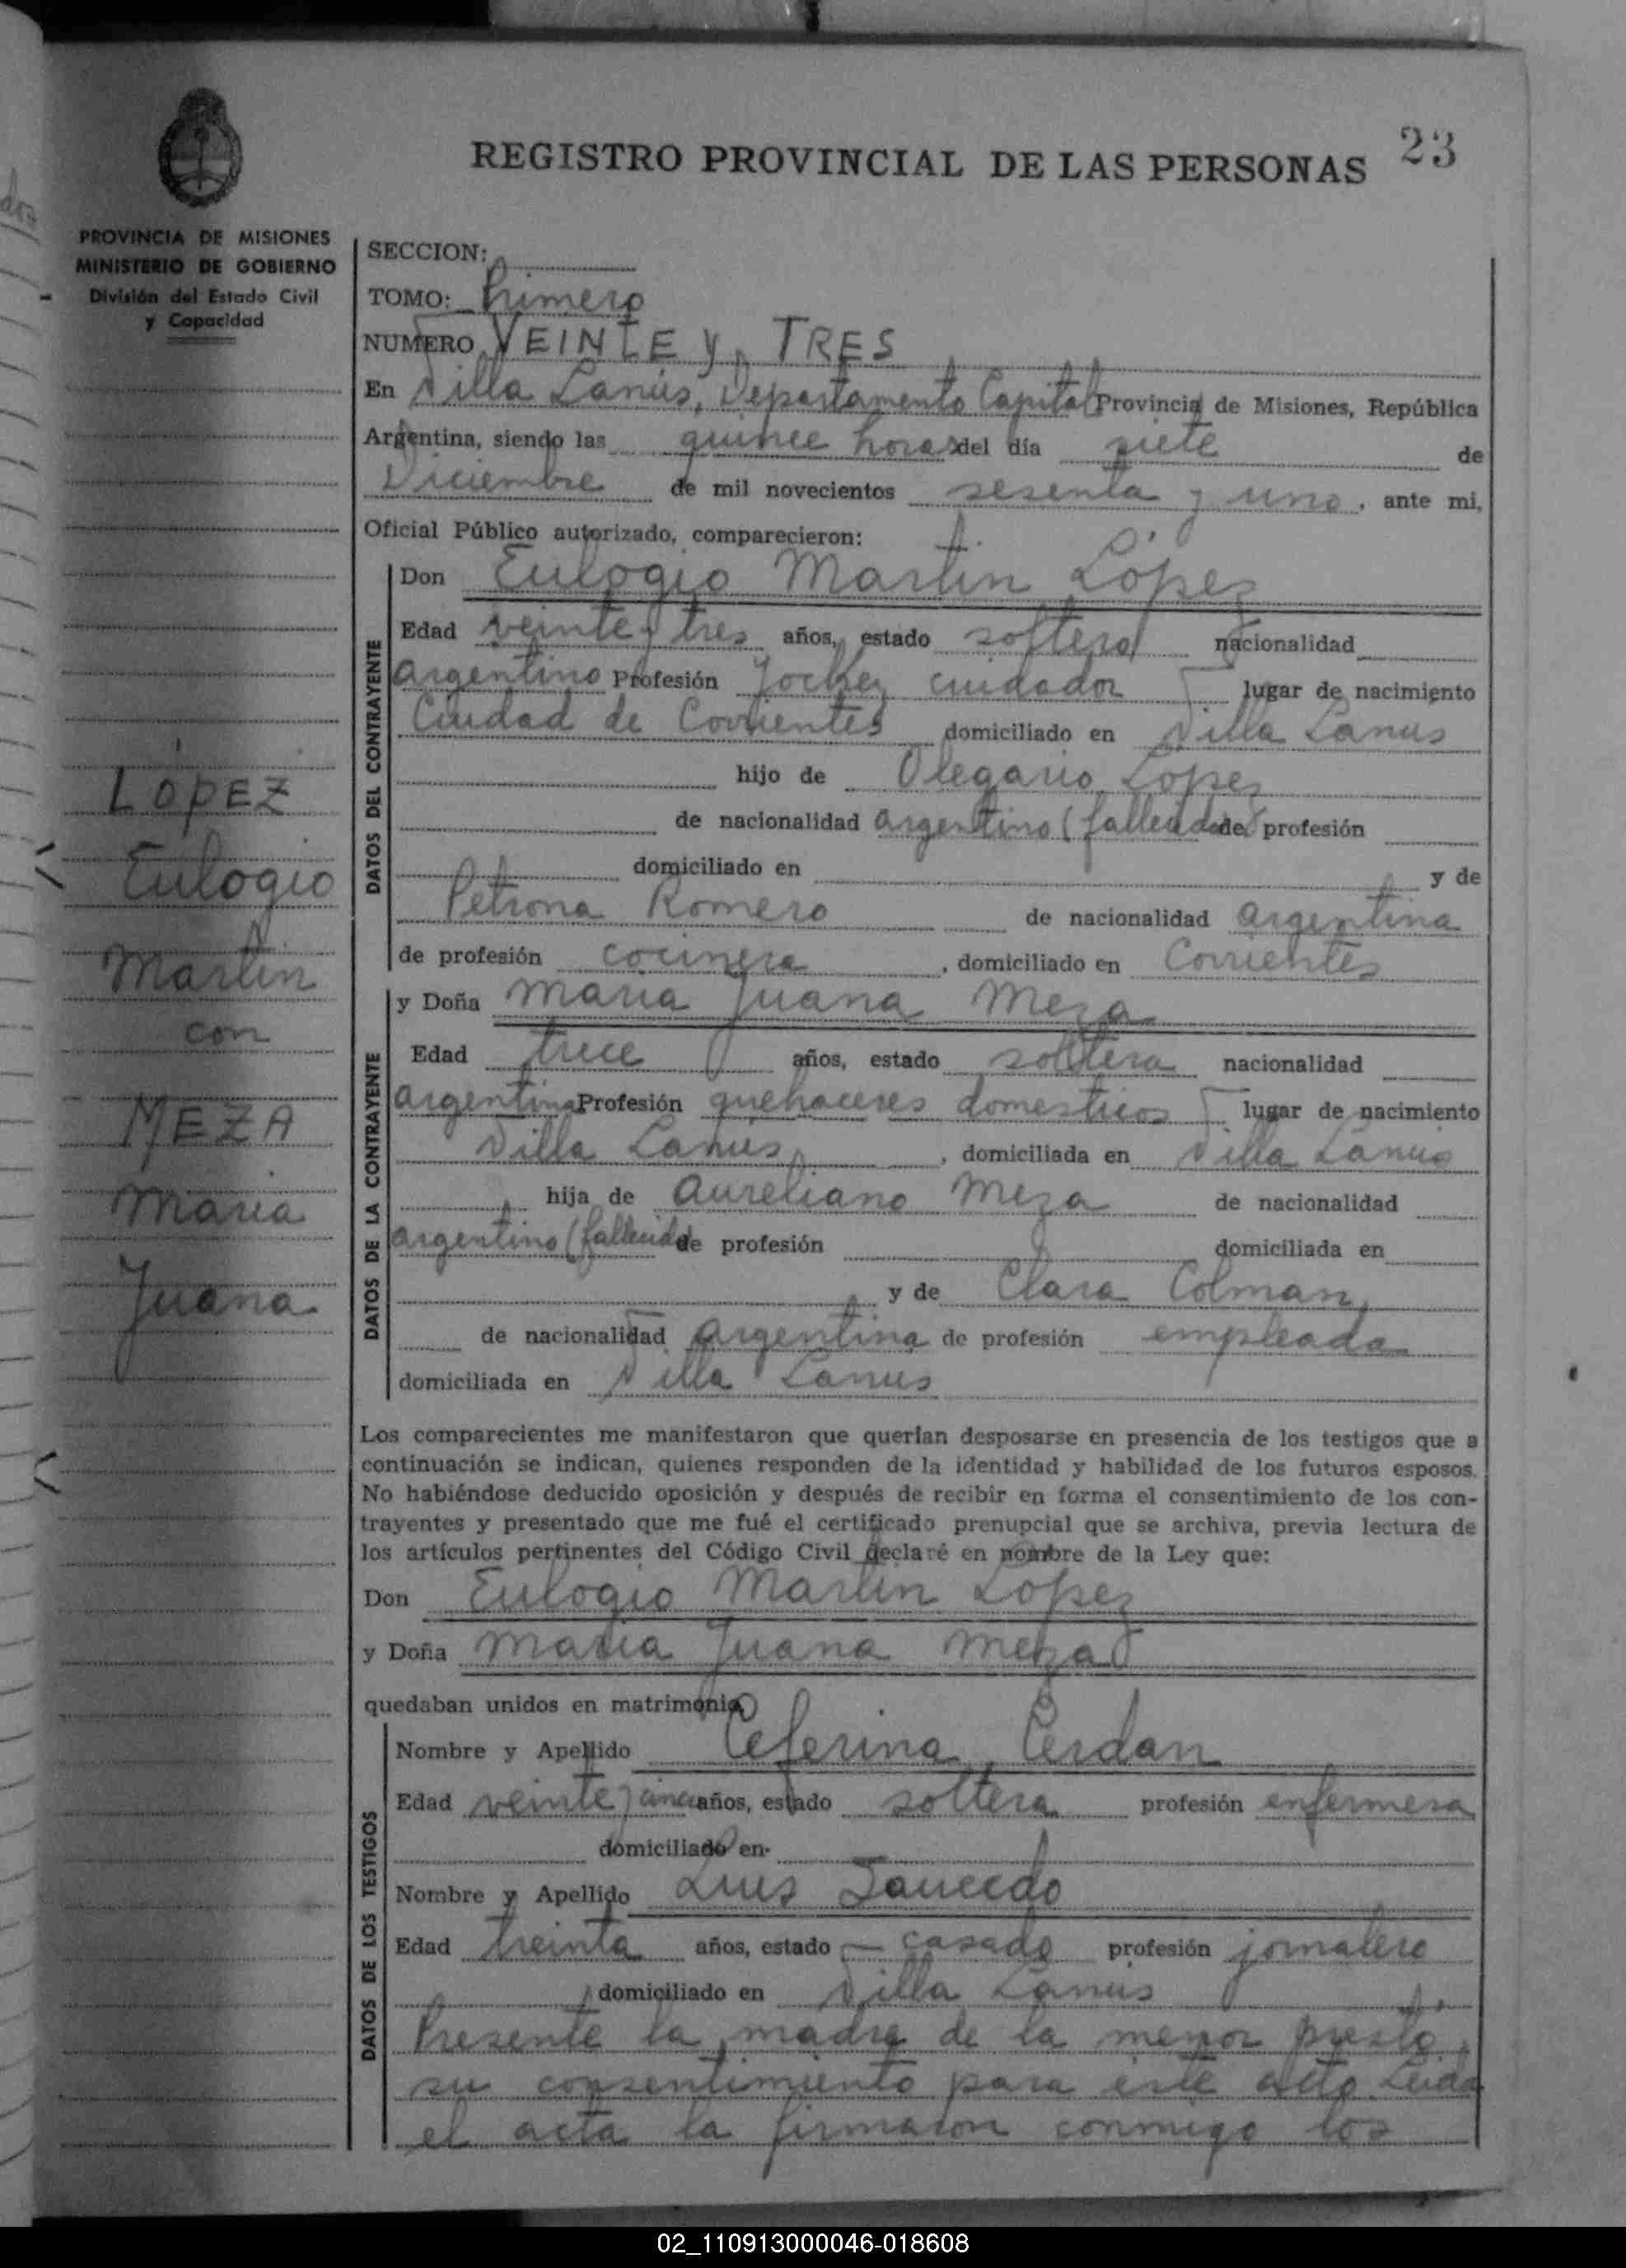 23
REGISTRO PROVINCIAL DE LAS PERSONAS
PROVINCIA DE MISIONES
MINISTERIO DE GOBIERNO
División del Estado Civil
y Capacidad
SECCION:
TOMO: Primero
NUMERO VEINTE y TRES
En Villa Lanús, Departamento Capital Provincia de Misiones, República
Argentina, siendo las quince horas del día siete de
Diciembre de mil novecientos sesenta y uno, ante mi,
Oficial Público autorizado, comparecieron:
DATOS DEL CONTRAYENTE
Don Eulogio Martin López
Edad veinte y tres años, estado soltero nacionalidad
argentino Profesión Jockey cuidador lugar de nacimiento
Ciudad de Corrientes domiciliado en Villa Lanus
hijo de Olegario Lopez
de nacionalidad argentino (fallecido de profesión
domiciliado en y de
Petrona Romero de nacionalidad argentina
de profesión cocinera, domiciliado en Corrientes
LOPEZ
Eulogio
Martin
con
MEZA
Maria
Juana
DATOS DE LA CONTRAYENTE
y Doña Maria Juana Meza
Edad trece años, estado soltera nacionalidad
argentina Profesión quehaceres domesticos lugar de nacimiento
Villa Lanús, domiciliada en Villa Lanus
hija de Aureliano Meza de nacionalidad
argentino (fallecido de profesión domiciliada en
y de Clara Colman,
de nacionalidad argentina de profesión empleada
domiciliada en Villa Lanus
Los comparecientes me manifestaron que querían desposarse en presencia de los testigos que a
continuación se indican, quienes responden de la identidad y habilidad de los futuros esposos.
No habiéndose deducido oposición y después de recibir en forma el consentimiento de los con-
trayentes y presentado que me fué el certificado prenupcial que se archiva, previa lectura de
los artículos pertinentes del Código Civil declaré en nombre de la Ley que:
Don Eulogio Martin Lopez
y Doña Maria Juana Meza
quedaban unidos en matrimonio
DATOS DE LOS TESTIGOS
Nombre y Apellido Ceferina Cerdan
Edad veinte y cinco años, estado soltera profesión enfermera
domiciliado en
Nombre y Apellido Luis Saucedo
Edad treinta años, estado casado profesión jornalero
domiciliado en Villa Lanús
Presente la madre de la menor prestó
su consentimiento para este acto. Leida
el acta la firmaron conmigo los
02_110913000046-018608